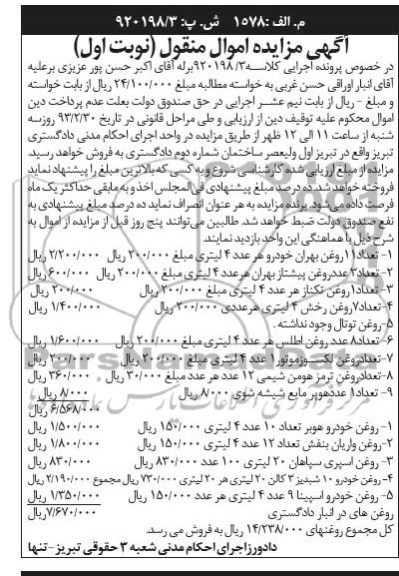 م. الف: ۱۵۷۸   ش. پ: ۹۲۰۱۹۸/۳
آگهی مزایده اموال منقول (نوبت اول)
در خصوص پرونده اجرایی کلاسه ۹۲۰۱۹۸/۳ برله آقای اکبر حسن پور عزیزی برعلیه
آقای انبار اوراقی حسن غربی به خواسته مطالبه مبلغ ۲۴/۱۰۰/۰۰۰ ریال از بابت خواسته
و مبلغ - ریال از بابت نیم عشر اجرایی در حق صندوق دولت بعلت عدم پرداخت دین
اموال محکوم علیه توقیف دین از ارزیابی و طی مراحل قانونی در تاریخ ۹۳/۲/۳۰ روز سه
شنبه از ساعت ۱۱ الی ۱۲ ظهر از طریق مزایده در واحد اجرای احکام مدنی دادگستری
تبریز واقع در تبریز اول ولیعصر ساختمان شماره دوم دادگستری به فروش خواهد رسید.
مزایده از مبلغ ارزیابی شده کارشناسی شروع و به کسی که بالاترین مبلغ را پیشنهاد نماید
فروخته خواهد شد. ده درصد مبلغ پیشنهادی فی المجلس اخذ و به مابقی حداکثر یک ماه
فرصت داده می شود. برنده مزایده به هر عنوان انصراف نماید ده درصد مبلغ پیشنهادی به
نفع صندوق دولت ضبط خواهد شد. طالبین می توانند پنج روز قبل از مزایده از اموال به
شرح ذیل با هماهنگی این واحد بازدید نمایند.
۱- تعداد۱۱روغن بهران خودرو هر عدد ۴ لیتری مبلغ ۲۰۰/۰۰۰ ریال   ۲/۲۰۰/۰۰۰ ریال
۲- تعداد۳عددروغن پیشتاز بهران هرعدد۴ لیتری مبلغ ۲۰۰/۰۰۰ ریال   ۶۰۰/۰۰۰ ریال
۳- تعداد۱روغن تکناز هر عدد ۴ لیتری مبلغ ۲۰۰/۰۰۰ ریال   ۲۰۰/۰۰۰ ریال
۴- تعداد۷روغن رخش ۴ لیتری هرعددی ۲۰۰/۰۰۰ ریال   ۱/۴۰۰/۰۰۰ ریال
۵- روغن توتال وجود نداشته.
۶- تعداد۸ عدد روغن اطلس هر عدد ۴ لیتری مبلغ ۲۰۰/۰۰۰ ریال   ۱/۶۰۰/۰۰۰ ریال
۷- تعدادروغن لکسوزموتور۱ عدد ۴ لیتری مبلغ ۲۰۰/۰۰۰ ریال   ۲۰۰/۰۰۰ ریال
۸- تعدادروغن ترمز هومن شیمی ۱۲ عدد هر عدد مبلغ ۳۰/۰۰۰ ریال   ۳۶۰/۰۰۰ ریال
۹- تعداد۱ عددهوپر مایع شیشه شوی ۸۰۰۰ ریال   ۸/۰۰۰ ریال
۶/۵۶۸/۰۰۰ ریال
۱- روغن خودرو هوبر تعداد ۱۰ عدد ۴ لیتری ۱۵۰/۰۰۰ ریال   ۱/۵۰۰/۰۰۰ ریال
۲- روغن واریان بنفش تعداد ۱۲ عدد ۴ لیتری ۱۵۰/۰۰۰ ریال   ۱/۸۰۰/۰۰۰ ریال
۳- روغن اسپری سپاهان ۲۰ لیتری ۱۰۰ عدد ۸۳۰/۰۰۰ ریال   ۸۳۰/۰۰۰ ریال
۴- روغن خودرو ۱۰ شبدیز ۳ گالن ۲۰ لیتری هر ۲۰ لیتری ۷۳۰/۰۰۰ ریال مجموع ۲/۱۹۰/۰۰۰ ریال
۵- روغن خودرو اسپینا ۹ عدد ۴ لیتری هر عدد ۱۵۰/۰۰۰ ریال   ۱/۳۵۰/۰۰۰ ریال
روغن های در انبار دادگستری   ۷/۶۷۰/۰۰۰ریال
کل مجموع روغنهای ۱۴/۲۳۸/۰۰۰ ریال به فروش می رسد.
دادورز اجرای احکام مدنی شعبه ۳ حقوقی تبریز - تنها